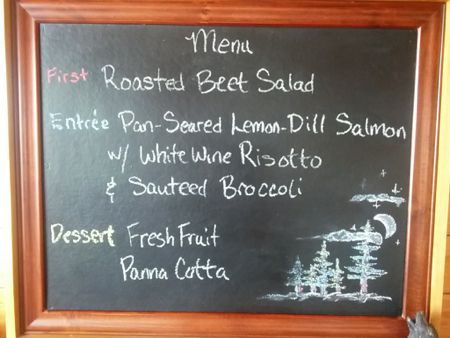 Menu
First Roasted Beet Salad
Entrée Pan-Seared Lemon-Dill Salmon
w/ White Wine Risotto
& Sauteed Broccoli
Dessert Fresh Fruit
Panna Cotta